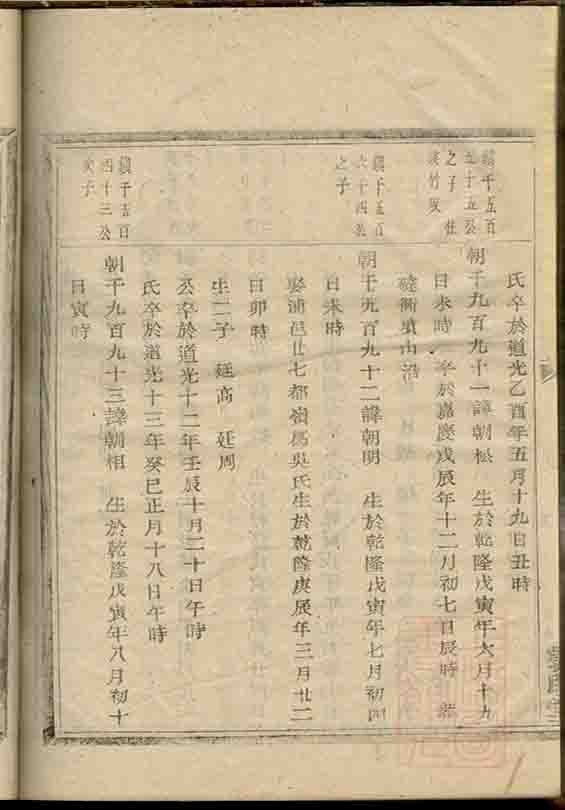 氏卒於道光乙酉年五月十九日丑時
鎮千五百
五十五公
之子 住
竹坂
朝千九百九十一諱朝松 生於乾隆戊寅年六月十九
日未時 卒於嘉慶戊辰年十二月初七日辰時 葬
衝墳山沿
鎮千五百
六十四公
之子
朝千九百九十二諱朝明 生於乾隆戊寅年七月初四
日未時
娶浦邑廿七都嶺馬吳氏生於乾隆庚辰年三月廿二
日卯時
生二子 廷高 廷周
公卒於道光十二年壬辰十月二十日午時
氏卒於道光十三年癸巳正月十八日午時
鎮千五百
四十三公
次子
朝千九百九十三諱朝相 生於乾隆戊寅年八月初十
日寅時